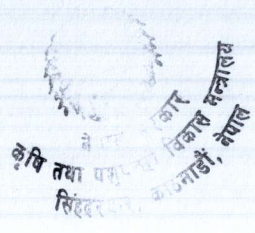 कृषि तथा पशुपन्छी विकास मन्त्रालय
सिंहदरबार, काठमाडौं, नेपाल